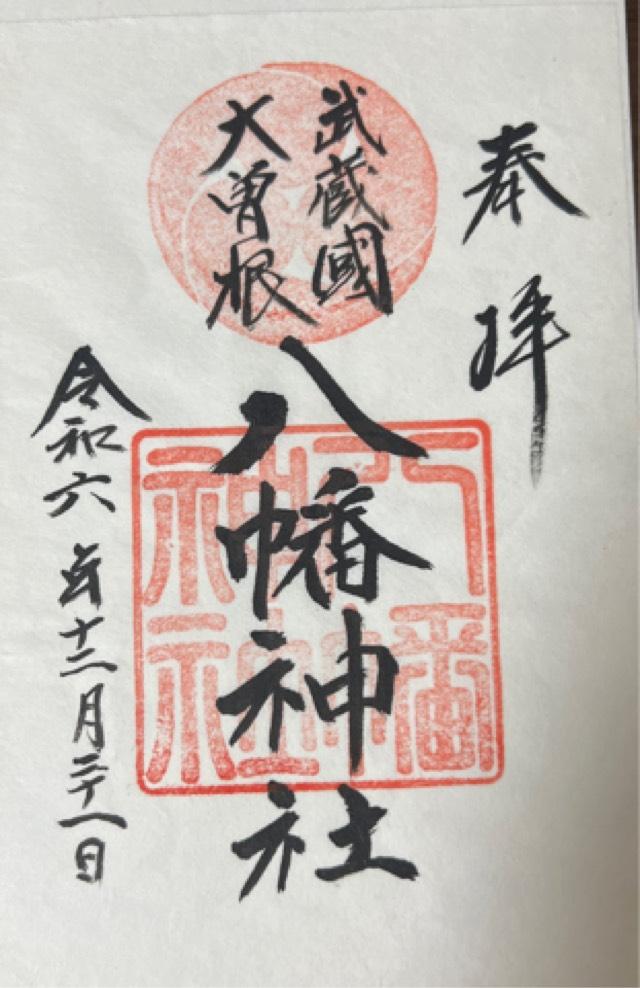 奉拝
武蔵國
大曽根
八幡神社
八幡
神社
令和六年十二月二十一日